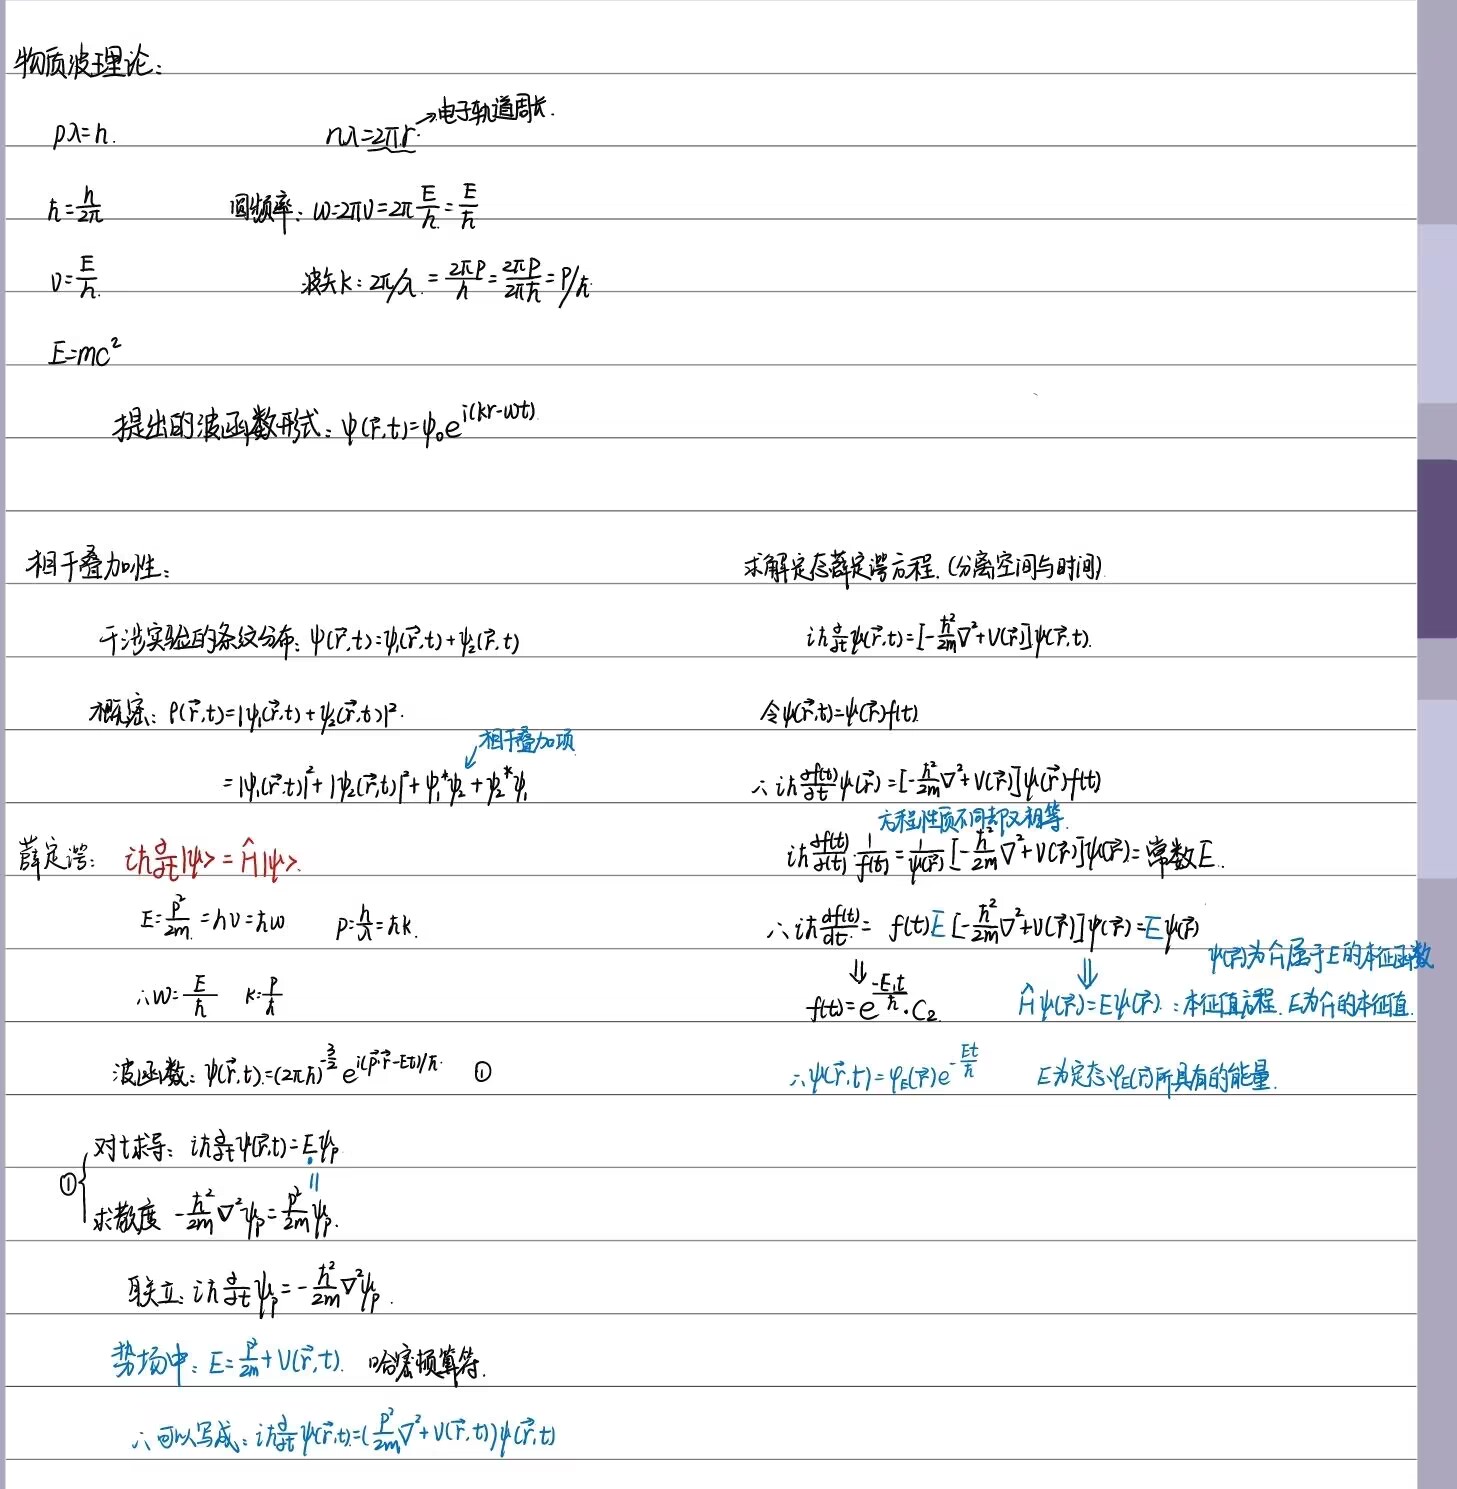 物质波理论:
pλ=h.
nλ=2πr →电子轨道周长.
ħ=h/2π
圆频率: ω=2πν=2π E/h=E/ħ
ν=E/h.
波矢k: 2π/λ=2πp/h=2πp/2πħ=p/ħ
E=mc²
提出的波函数形式: ψ(r⃗,t)=ψ₀e^{i(kr-ωt)}
相干叠加性:
干涉实验的条纹分布: ψ(r⃗,t)=ψ₁(r⃗,t)+ψ₂(r⃗,t)
概密: ρ(r⃗,t)=|ψ₁(r⃗,t)+ψ₂(r⃗,t)|².
相干叠加项
=|ψ₁(r⃗,t)|²+|ψ₂(r⃗,t)|²+ψ₁*ψ₂+ψ₂*ψ₁
薛定谔: iħ ∂/∂t|ψ>=Ĥ|ψ>.
E=p²/2m=hν=ħω p=h/λ=ħk.
∴ω=E/ħ k=p/ħ
波函数: ψ(r⃗,t)=(2πħ)^{-3/2} e^{i(p⃗·r⃗-Et)/ħ} ①
① 对t求导: iħ ∂/∂t ψ(r⃗,t)=Eψp
=
求散度 -ħ²/2m ∇²ψp=p²/2m ψp.
联立: iħ ∂/∂t ψp=-ħ²/2m ∇²ψp.
势场中: E=p²/2m+V(r⃗,t). 哈密顿算符.
∴可以写成: iħ ∂/∂t ψ(r⃗,t)=(p²/2m ∇²+V(r⃗,t))ψ(r⃗,t)
求解定态薛定谔方程.(分离空间与时间)
iħ ∂/∂t ψ(r⃗,t)=[-ħ²/2m ∇²+V(r⃗)]ψ(r⃗,t).
令ψ(r⃗,t)=ψ(r⃗)f(t)
∴iħ ∂f(t)/∂t ψ(r⃗)=[-ħ²/2m ∇²+V(r⃗)]ψ(r⃗)f(t)
方程性质不同却又相等.
iħ ∂f(t)/∂(t)·1/f(t)=1/ψ(r⃗)[-ħ²/2m ∇²+V(r⃗)]ψ(r⃗)=常数E.
∴iħ df(t)/dt=f(t)E [-ħ²/2m ∇²+V(r⃗)]ψ(r⃗)=Eψ(r⃗)
ψ(r⃗)为Ĥ属于E的本征函数
⇓ ⇓
f(t)=e^{-Et/ħ}·C₂ Ĥψ(r⃗)=Eψ(r⃗).:本征值方程.E为Ĥ的本征值.
∴ψ(r⃗,t)=φE(r⃗)e^{-Et/ħ} E为定态φE(r⃗)所具有的能量.